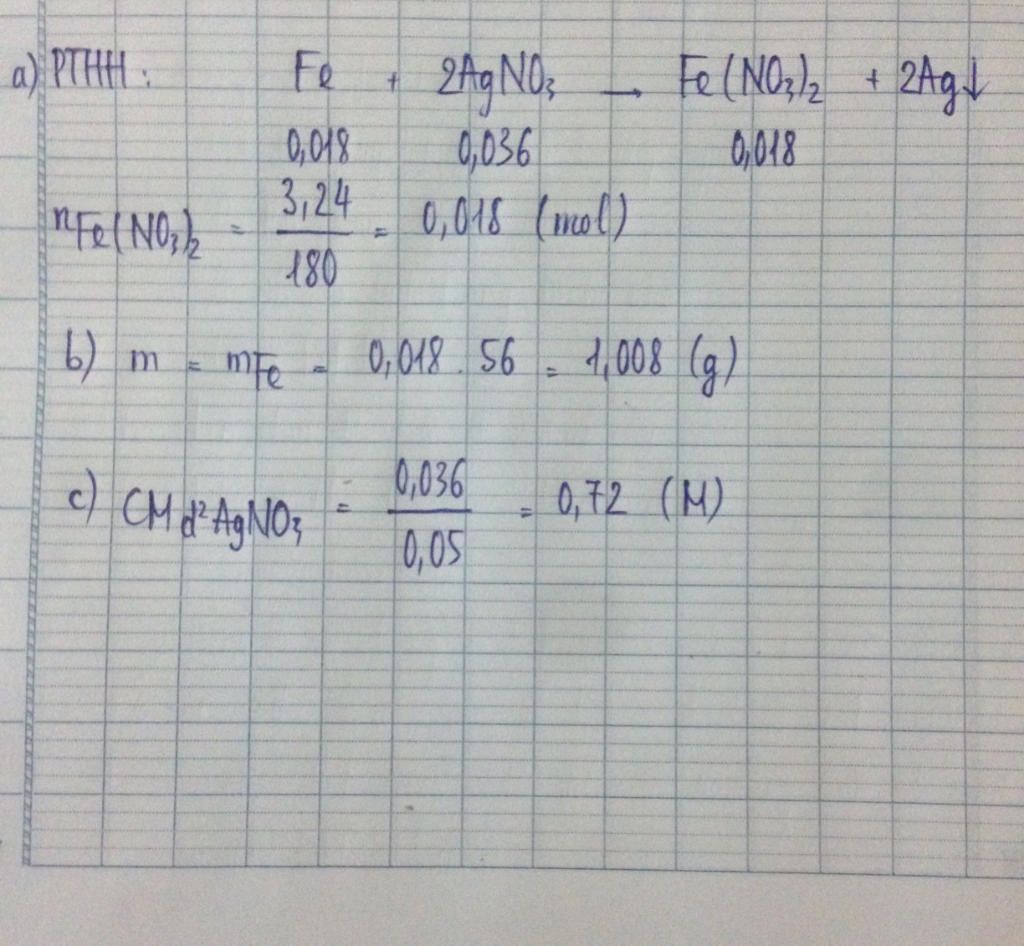 a) PTHH: Fe + 2AgNO3 → Fe(NO3)2 + 2Ag↓
0,018 0,036 0,018
nFe(NO3)2 = 3,24/180 = 0,018 (mol)
b) m = mFe = 0,018 . 56 = 1,008 (g)
c) CM d² AgNO3 = 0,036/0,05 = 0,72 (M)